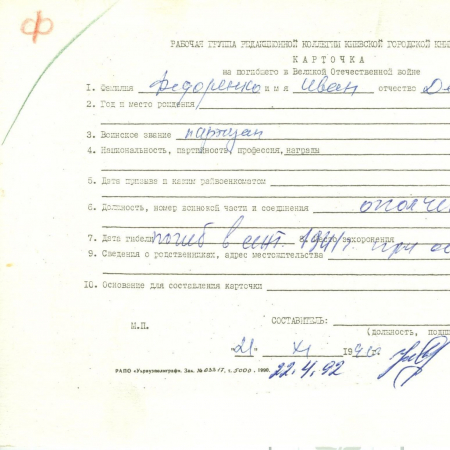 ф
РАБОЧАЯ ГРУППА РЕДАКЦИОННОЙ КОЛЛЕГИИ КИЕВСКОЙ ГОРОДСКОЙ КНИ
КАРТОЧКА
на погибшего в Великой Отечественной войне
1. Фамилия Федоренко имя Иван отчество
2. Год и место рождения
3. Воинское звание партизан
4. Национальность, партийность, профессия, награды
5. Дата призыва и каким райвоенкоматом
6. Должность, номер воинской части и соединения ополче
7. Дата гибели погиб в сент. 1941г. 8. Место захоронения при об
9. Сведения о родственниках, адрес местожительства
10. Основание для составления карточки
СОСТАВИТЕЛЬ:
(должность, подпи
М.П.
"21" XI 1991г.
РАПО «Укрвузполиграф». Зак. № 0331 т. 5000. 1990.
22.4.92